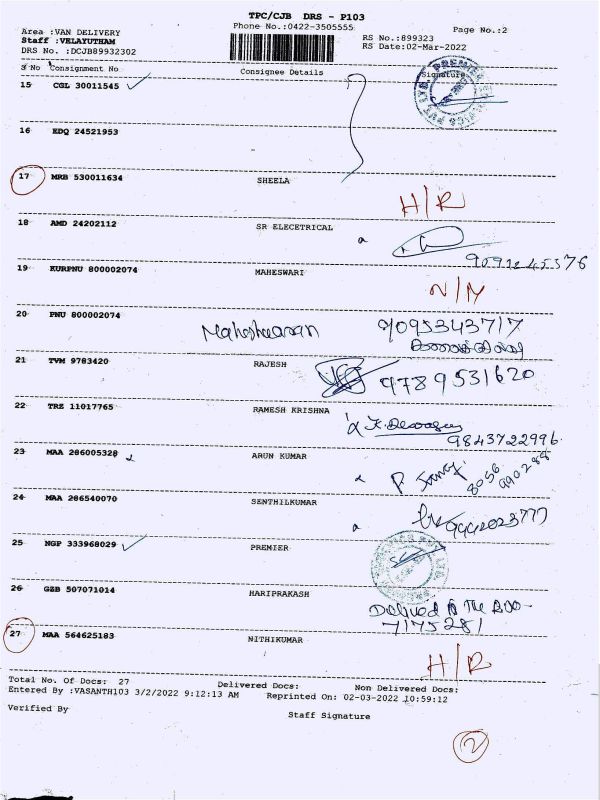 TPC/CJB DRS - P103
Area :VAN DELIVERY Phone No.:0422-3505555 Page No.:2
Staff :VELAYUTHAM RS No.:899323
DRS No. :DCJB89932302 RS Date:02-Mar-2022
S No Consignment No Consignee Details Signature
15 CGL 30011545
16 EDQ 24521953
17 MRB 530011634 SHEELA H/R
18 AMD 24202112 SR ELECETRICAL
19 KURPNU 800002074 MAHESWARI N/M
20 PNU 800002074 7095343717
21 TVM 9783420 RAJESH 9789531620
22 TRZ 11017765 RAMESH KRISHNA
9843722996
23 MAA 286005328 ARUN KUMAR
8056
990288
24 MAA 286540070 SENTHILKUMAR
25 NGP 333968029 PREMIER
26 GZB 507071014 HARIPRAKASH Delived to The
7175281
27 MAA 564625183 NITHIKUMAR H/R
Total No. Of Docs: 27 Delivered Docs: Non Delivered Docs:
Entered By :VASANTH103 3/2/2022 9:12:13 AM Reprinted On: 02-03-2022 10:59:12
Verified By Staff Signature
2